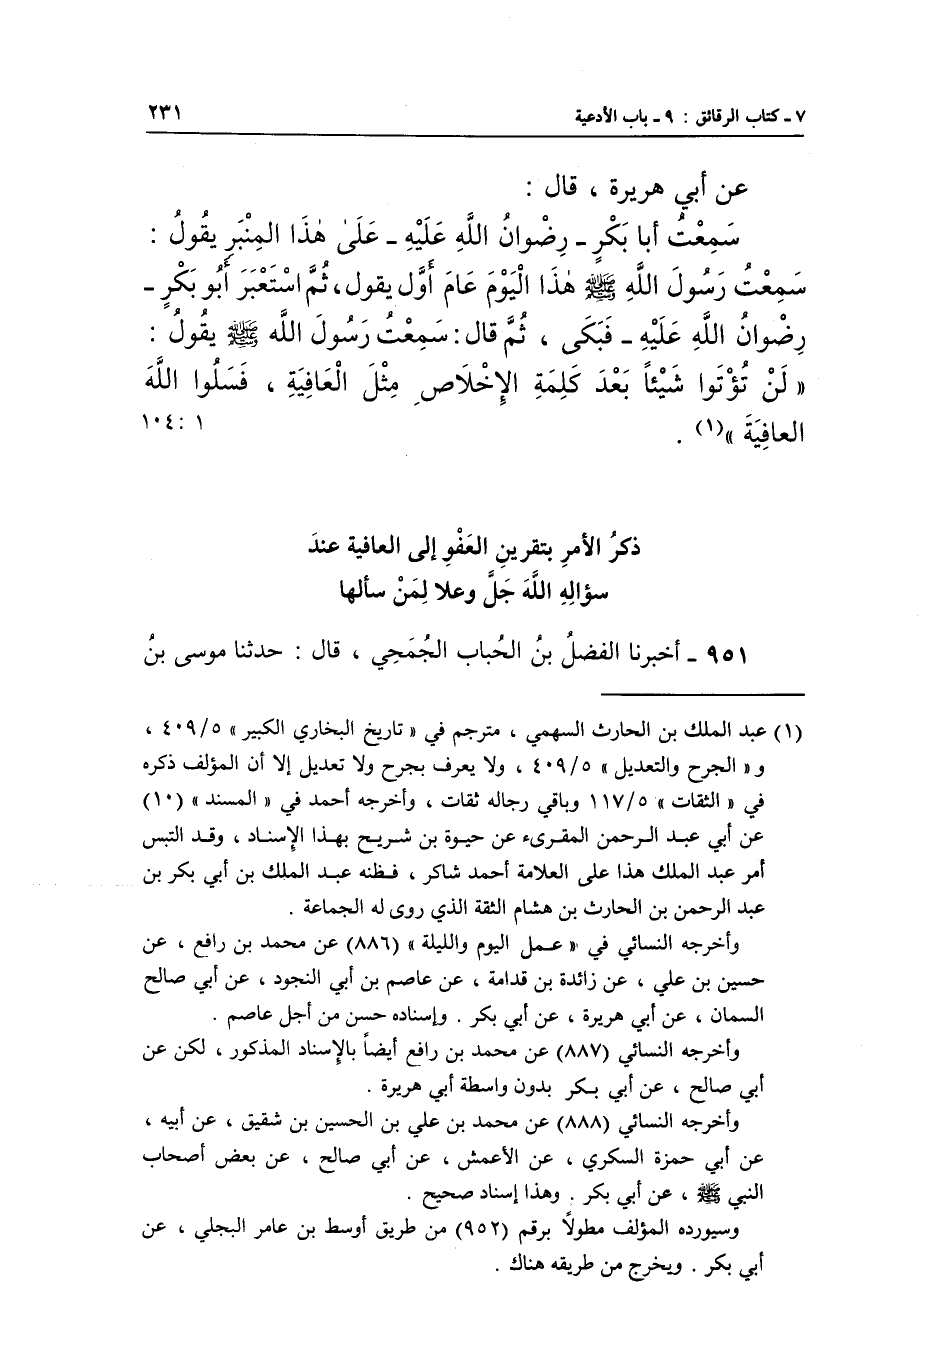 ٧ ـ كتاب الرقائق : ٩ ـ باب الأدعية ٢٣١
عن أبي هريرة ، قال :
سَمِعْتُ أبا بَكْرٍ ـ رِضْوانُ اللَّهِ عَلَيْهِ ـ عَلَىٰ هٰذَا المِنْبَرِ يقُولُ :
سَمِعْتُ رَسُولَ اللَّهِ ﷺ هٰذَا الْيَوْمَ عَامَ أَوَّل يقول، ثُمَّ اسْتَعْبَرَ أَبُو بَكْرٍ ـ
رِضْوانُ اللَّهِ عَلَيْهِ ـ فَبَكَى ، ثُمَّ قال : سَمِعْتُ رَسُولَ الله ﷺ يقُولُ :
« لَنْ تُؤْتَوا شَيْئاً بَعْدَ كَلِمَةِ الإِخْلَاصِ مِثْلَ الْعَافِيَةِ ، فَسَلُوا اللَّهَ
العافِيَةَ »(١) . ١ : ١٠٤
ذكرُ الأمرِ بتقرينِ العَفْوِ إلى العافية عندَ
سؤالِهِ اللَّهَ جَلَّ وعلا لِمَنْ سألها
٩٥١ ـ أخبرنا الفضلُ بنُ الحُباب الجُمَحِي ، قال : حدثنا موسى بنُ
(١) عبد الملك بن الحارث السهمي ، مترجم في « تاريخ البخاري الكبير » ٤٠٩/٥ ،
و « الجرح والتعديل » ٤٠٩/٥ ، ولا يعرف بجرح ولا تعديل إلا أن المؤلف ذكره
في « الثقات » ١١٧/٥ وباقي رجاله ثقات ، وأخرجه أحمد في « المسند » (١٠)
عن أبي عبد الرحمن المقرىء عن حيوة بن شريح بهذا الإسناد ، وقد التبس
أمر عبد الملك هذا على العلامة أحمد شاكر ، فظنه عبد الملك بن أبي بكر بن
عبد الرحمن بن الحارث بن هشام الثقة الذي روى له الجماعة .
وأخرجه النسائي في « عمل اليوم والليلة » (٨٨٦) عن محمد بن رافع ، عن
حسين بن علي ، عن زائدة بن قدامة ، عن عاصم بن أبي النجود ، عن أبي صالح
السمان ، عن أبي هريرة ، عن أبي بكر . وإسناده حسن من أجل عاصم .
وأخرجه النسائي (٨٨٧) عن محمد بن رافع أيضاً بالإسناد المذكور ، لكن عن
أبي صالح ، عن أبي بكر بدون واسطة أبي هريرة .
وأخرجه النسائي (٨٨٨) عن محمد بن علي بن الحسين بن شقيق ، عن أبيه ،
عن أبي حمزة السكري ، عن الأعمش ، عن أبي صالح ، عن بعض أصحاب
النبي ﷺ ، عن أبي بكر . وهذا إسناد صحيح .
وسيورده المؤلف مطولاً برقم (٩٥٢) من طريق أوسط بن عامر البجلي ، عن
أبي بكر . ويخرج من طريقه هناك .